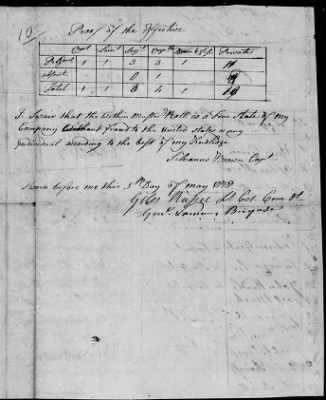 10
Proof of the Effective
Capt Lieut Sergt Corpls Drum & Fife Privates
Present 1 1 3 3 1
Absent 0 1
Total 1 1 3 4 1 19
I Swear that the within Muster Roll is a True State of my
Company without fraud to the United States or any
Individual according to the best of my Knowledge
Brown Capt
Sworn before me this 5th Day of May 1778
Giles Russel Lt Col. Comdt
Genl Varnums Brigade